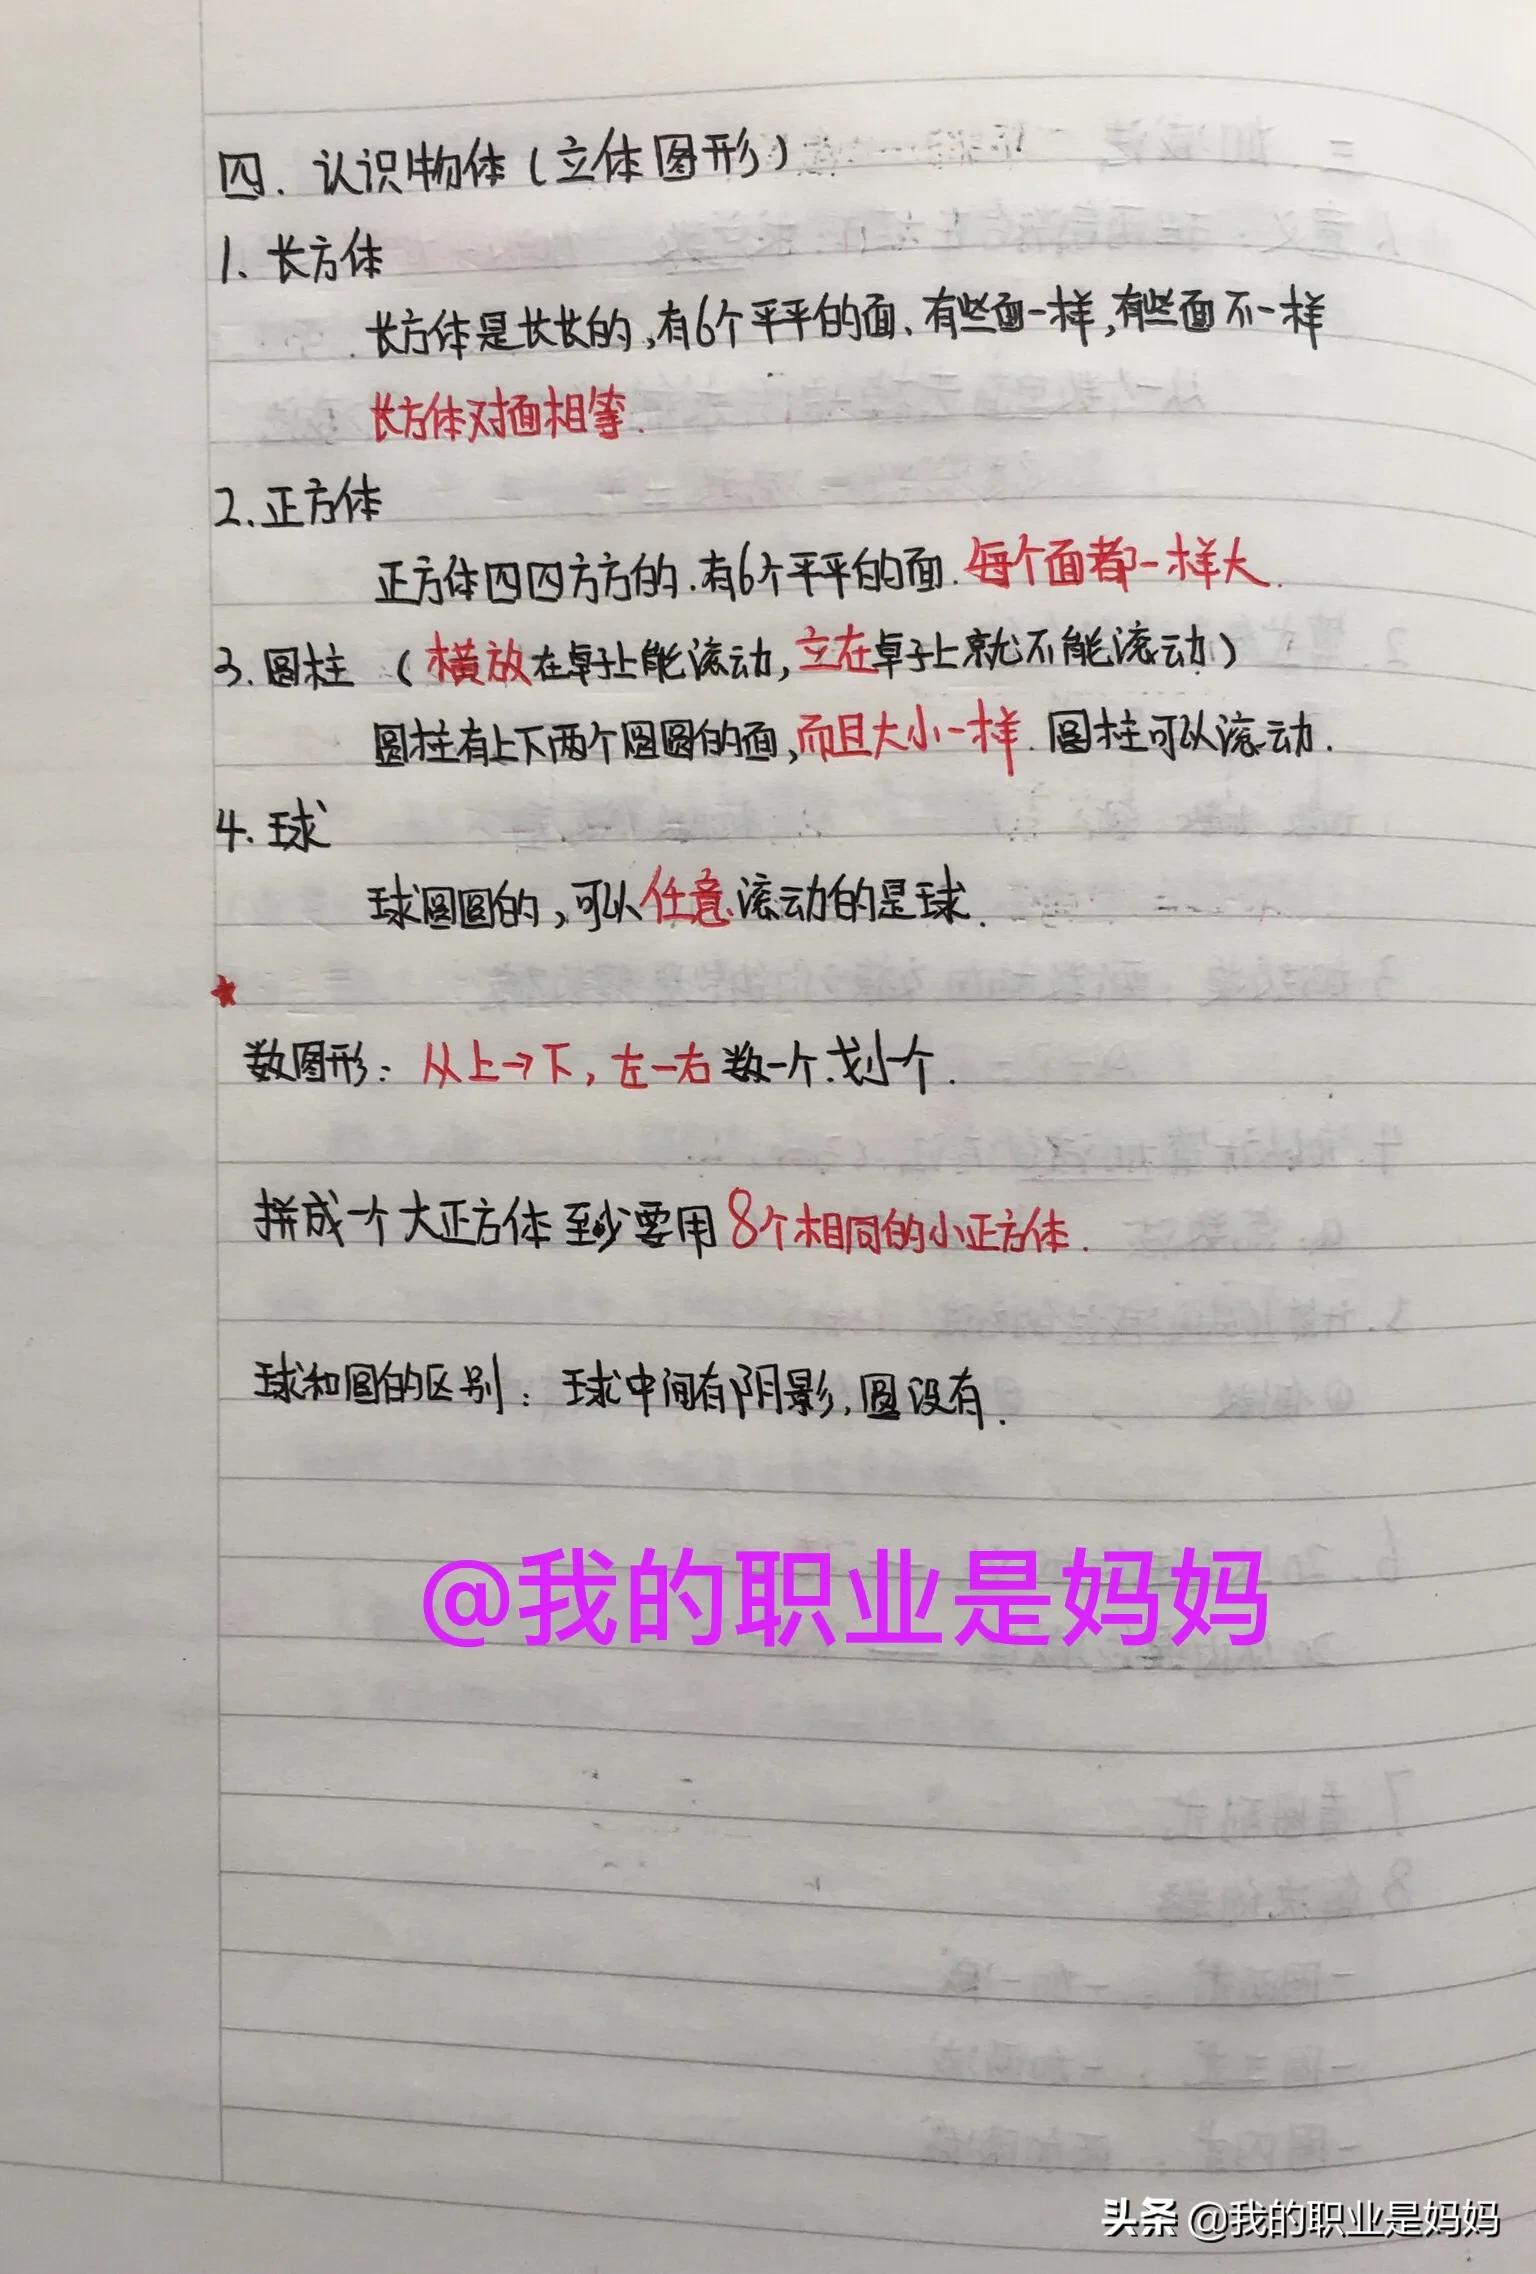 四. 认识物体(立体图形)
1. 长方体
长方体是长长的,有6个平平的面、有些面一样,有些面不一样
长方体对面相等.
2. 正方体
正方体四四方方的.有6个平平的面.每个面都一样大.
3. 圆柱 (横放在桌子上能滚动,立在桌子上就不能滚动)
圆柱有上下两个圆圆的面,而且大小一样.圆柱可以滚动.
4. 球
球圆圆的,可以任意滚动的是球.
★
数图形:从上→下,左一右数一个.划一个.
拼成一个大正方体至少要用8个相同的小正方体.
球和圆的区别:球中间有阴影,圆没有.
@我的职业是妈妈
头条 @我的职业是妈妈